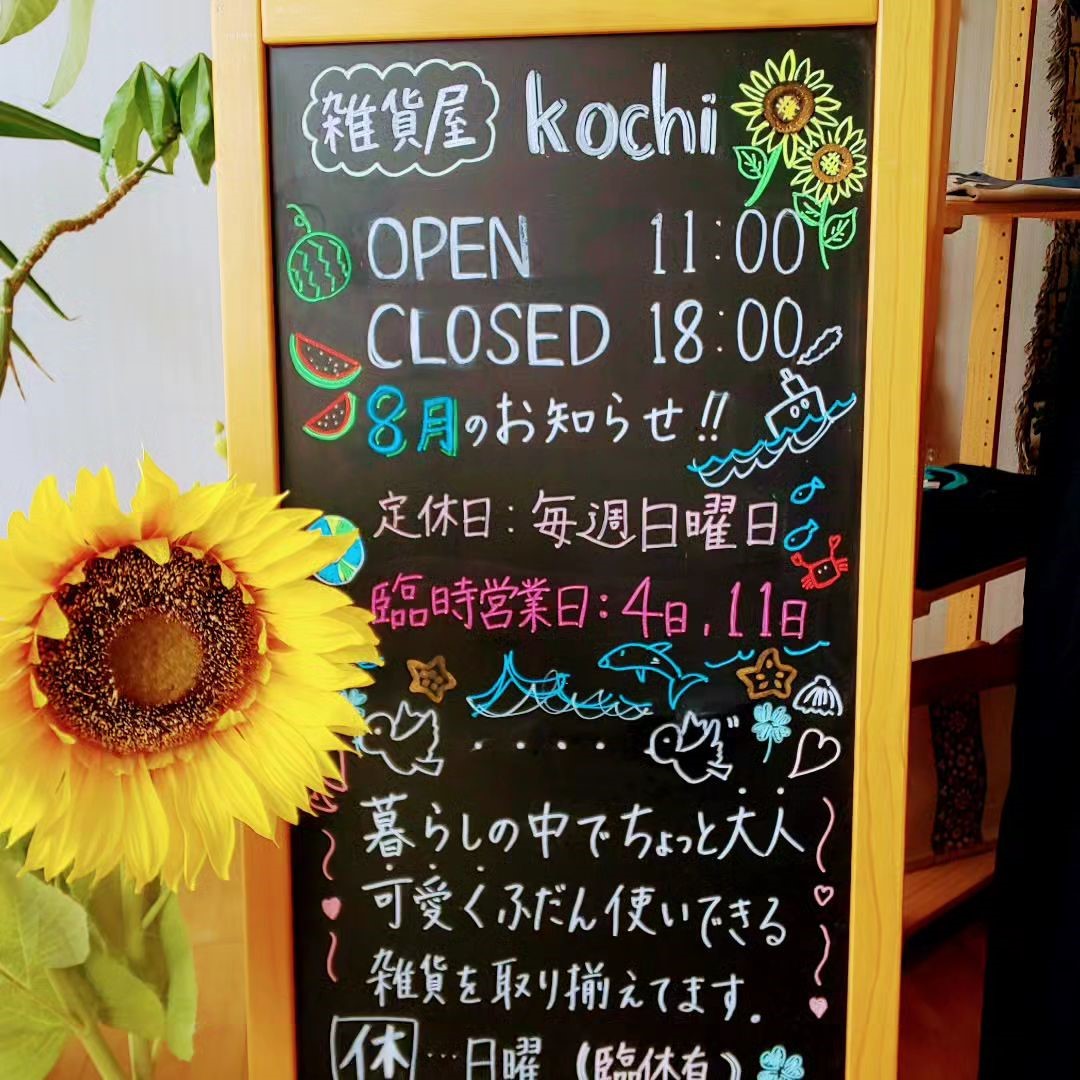 雑貨屋 kochi
OPEN 11:00
CLOSED 18:00
8月のお知らせ!!
定休日:毎週日曜日
臨時営業日:4日,11日
暮らしの中でちょっと大人
可愛くふだん使いできる
雑貨を取り揃えてます.
休…日曜(臨休有)